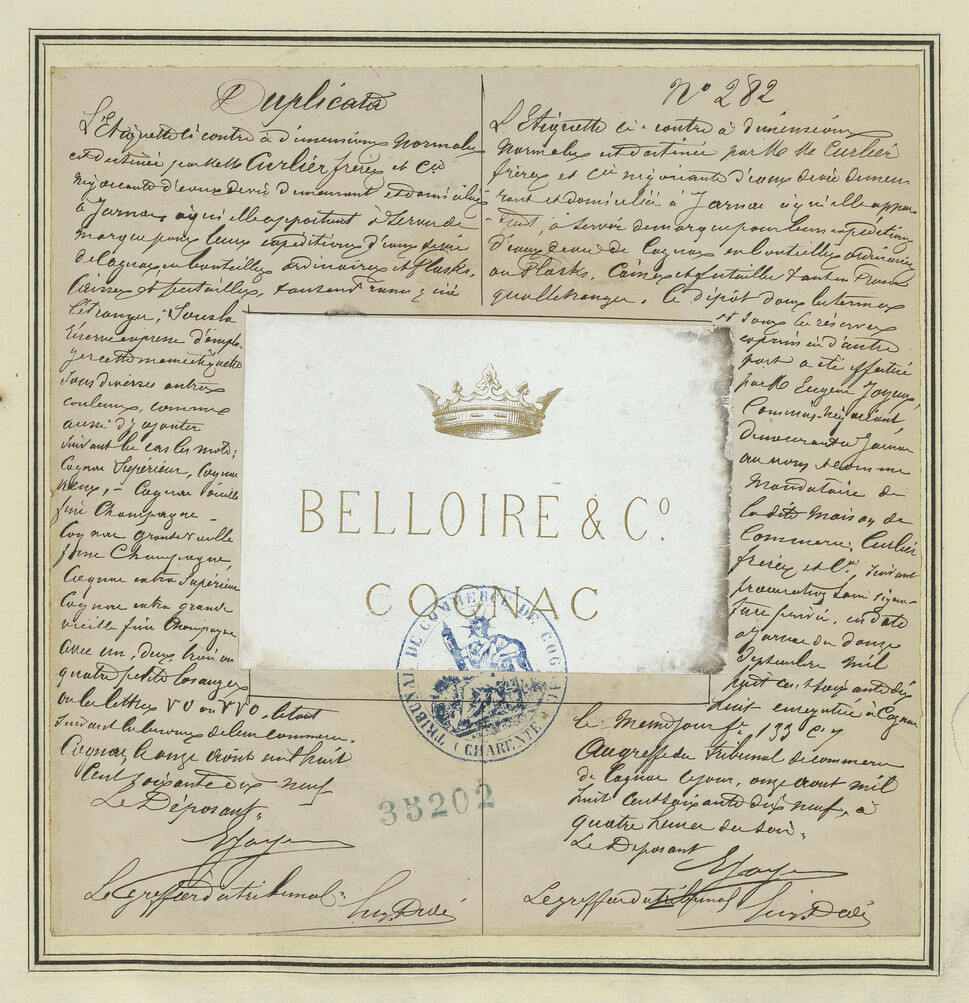 Duplicata
L'Etiquette ci contre à dimensions Normales
est destinée par MM. Curlier frères et Cie
négociants d'eaux de vie demeurant et domiciliés
à Jarnac à qui elle appartient à servir de
marque pour leurs expéditions d'eaux de vie
de Cognac en bouteilles ordinaires et flasks,
Caisses et futailles, tant en France qu'à
l'étranger; Sous la
réserve expresse d'emplo-
yer cette même étiquette
sous diverses autres
couleurs, comme
aussi d'y ajouter
suivant le cas les mots:
Cognac Supérieur, Cognac
vieux, - Cognac vieille
fine Champagne -
Cognac grande vieille
fine Champagne,
Cognac extra Supérieur
Cognac extra grande
vieille fine Champagne
avec un, deux, trois ou
quatre petits losanges
ou les lettres VO ou VVO, le tout
suivant les besoins de leur commerce.
Cognac, le onze août mil huit
Cent soixante dix neuf
Le Déposant
Le greffier du tribunal
No 282
L'Etiquette ci-contre à dimensions
Normales est destinée par MM. Curlier
frères et Cie négociants d'eaux de vie demeu-
rant et domiciliés à Jarnac à qui elle appar-
tient, à servir de marque pour leurs expéditions
d'eaux de vie de Cognac en bouteilles ordinaires
ou flasks, Caisses et futailles tant en France
qu'à l'étranger. Le dépôt dans les termes
et sous les réserves
exprimés d'autre
part a été effectué
par M. Eugène
Commis-négociant
demeurant à Jarnac
au nom et comme
Mandataire de
la dite Maison de
Commerce, Curlier
frères et Cie, suivant
procuration sous signa-
ture privée, en date
à Jarnac du douze
Septembre mil
huit cent soixante dix
huit enregistrée à Cognac
le même jour fo. 133
Au greffe du tribunal de commerce
de Cognac ce jour, onze août mil
huit cent soixante dix neuf, à
quatre heures du soir.
Le Déposant
Le greffier du tribunal
BELLOIRE & Co.
COGNAC
TRIBUNAL DE COMMERCE DE COGNAC
(CHARENTE)
35202